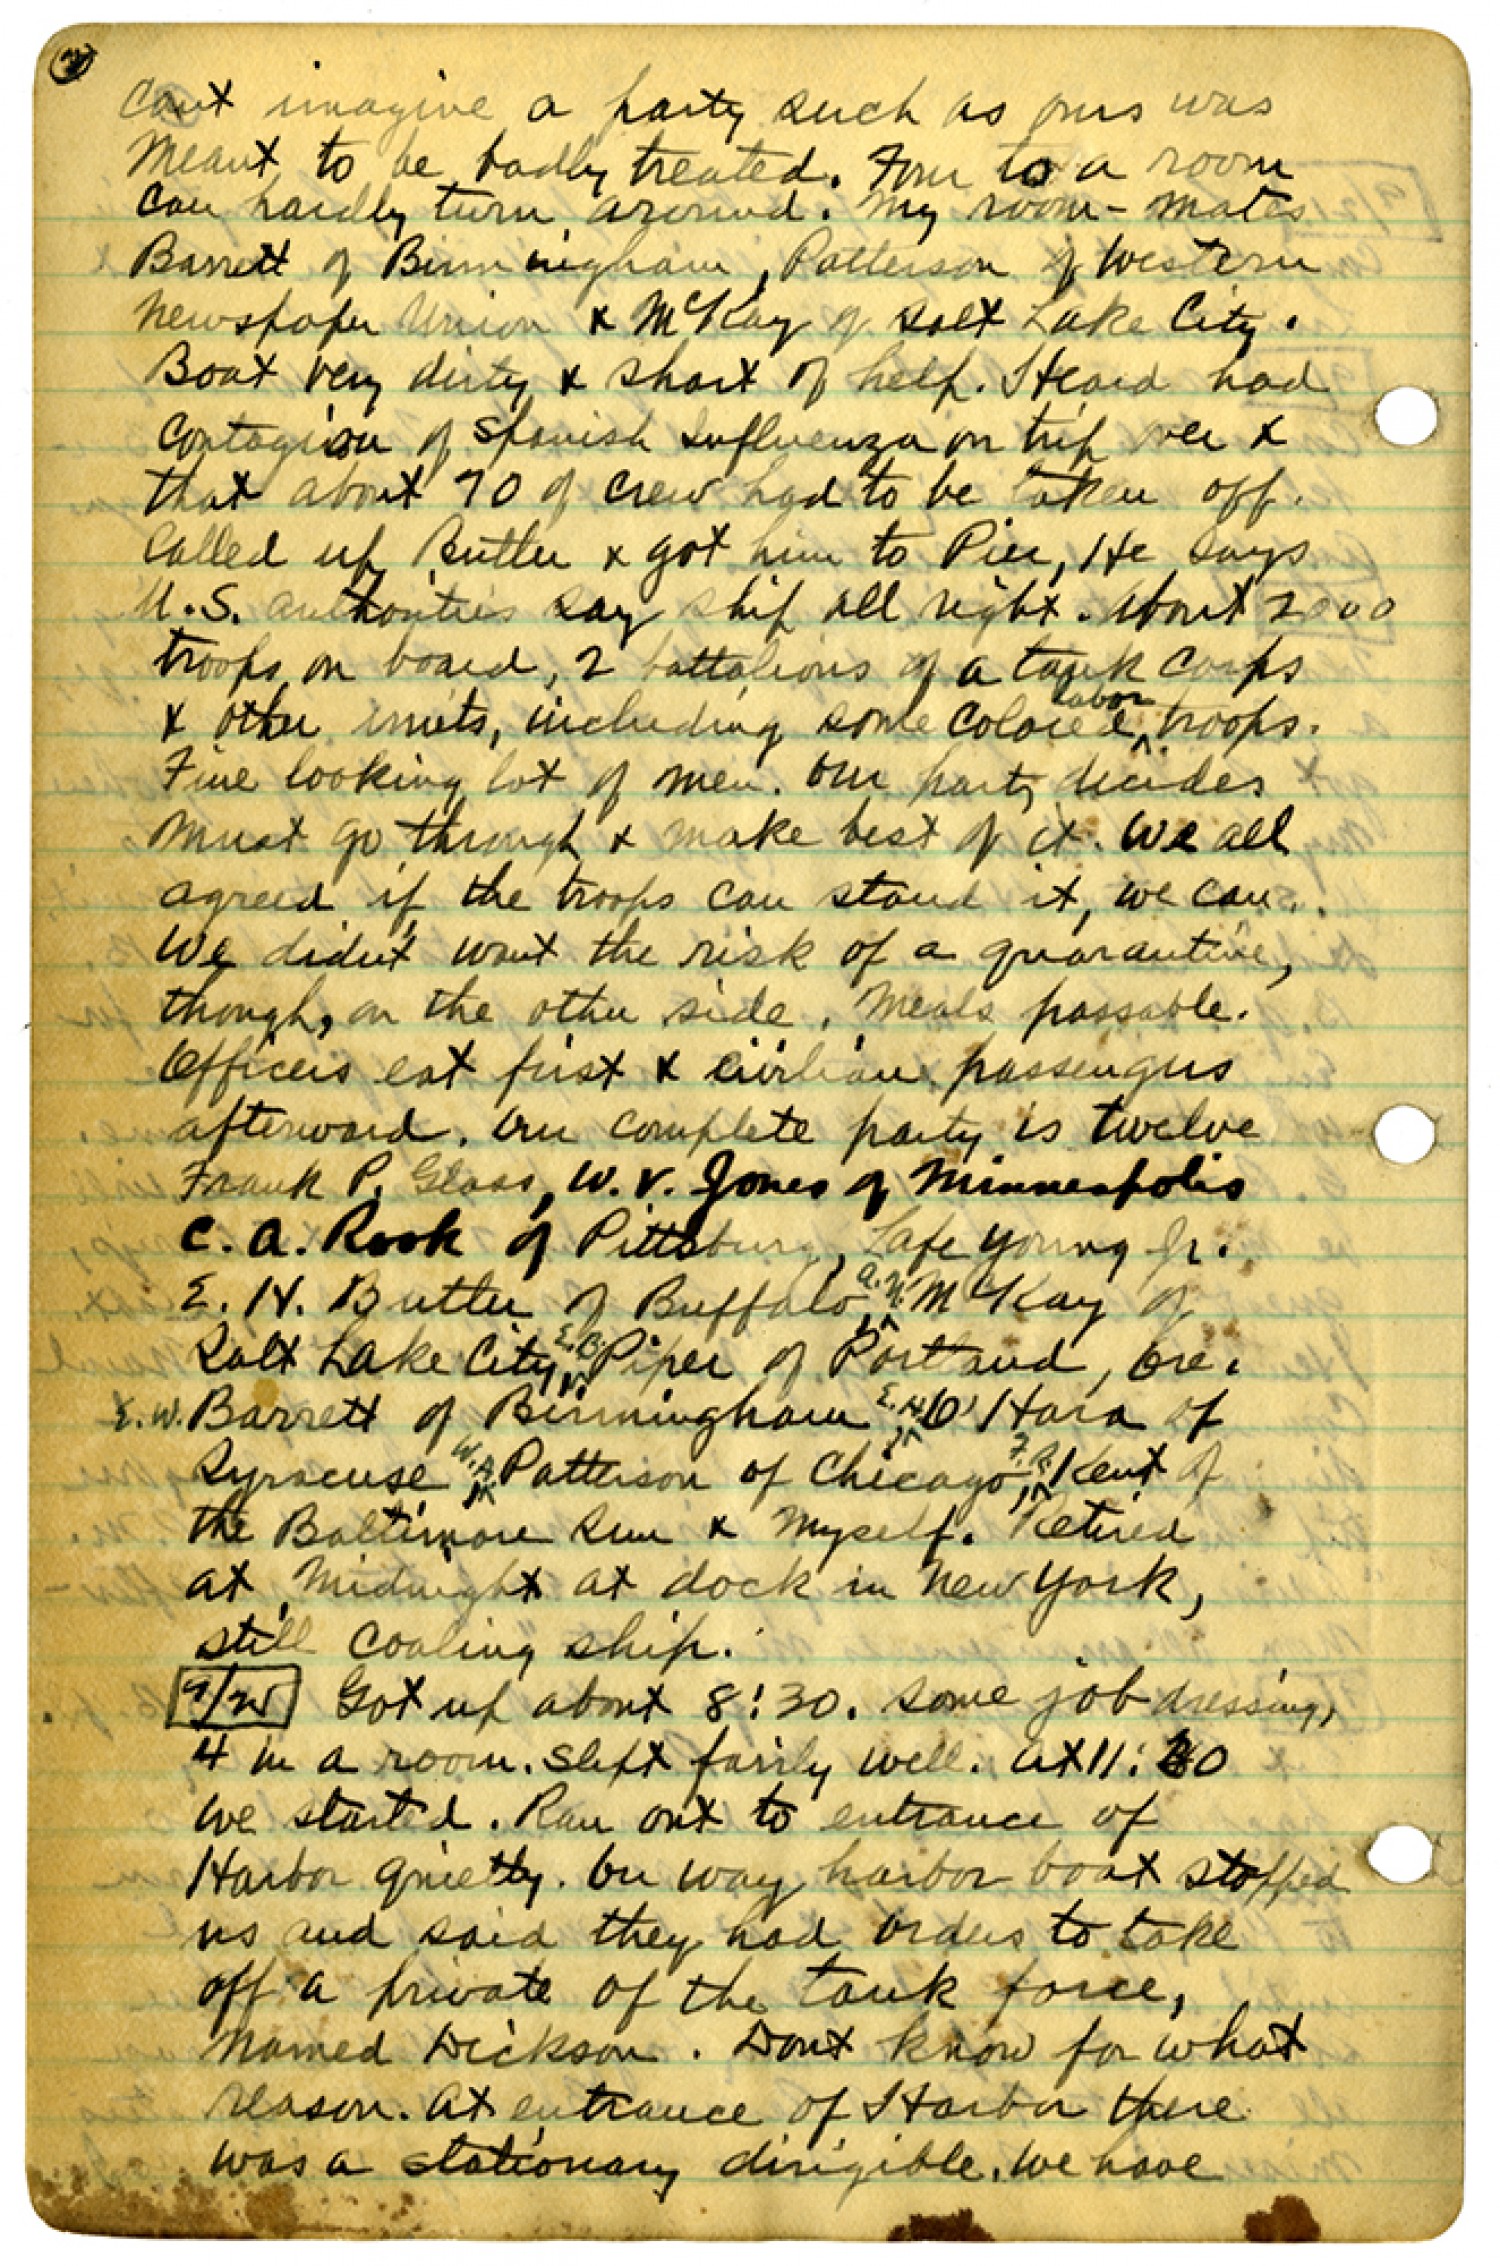 2
Cant imagine a party such as ours was
meant to be badly treated. Four to a room
Can hardly turn around. My room-mates
Barrett of Birmingham, Patterson of Western
Newspaper Union & McKay of Salt Lake City.
Boat very dirty & short of help. Heard had
Contagion of Spanish Influenza on trip over &
that about 70 of crew had to be taken off.
Called up Butler & got him to Pier, He says
U.S. authorities say ship all right. About 2000
troops on board, 2 battalions of a tank Corps
& other units, including some Colored labor troops.
Fine looking lot of men. Our party decides
must go through & make best of it. We all
agreed if the troops can stand it, we can.
We didn't want the risk of a quarantine,
though, on the other side. Meals passable.
Officers eat first & civilian passengers
afterward. Our complete party is twelve
Frank P. Glass, W. V. Jones of Minneapolis
C. A. Rook of Pittsburg, Lafe Young Jr.
E. H. Butler of Buffalo, A. N. McKay of
Salt Lake City, E. B. Piper of Portland, Ore.
E. W. Barrett of Birmingham, E. H. O'Hara of
Syracuse, W. A. Patterson of Chicago, F. R. Kent of
the Baltimore Sun & myself. Retired
at midnight at dock in New York,
still coaling ship.
Got up about 8:30. Some job dressing,
4 in a room. Slept fairly well. At 11:30
we started. Ran out to entrance of
Harbor quietly. On way harbor boat stopped
us and said they had orders to take
off a private of the tank force,
named Dickson. Dont know for what
reason. At entrance of Harbor there
was a stationary dirigible. We have